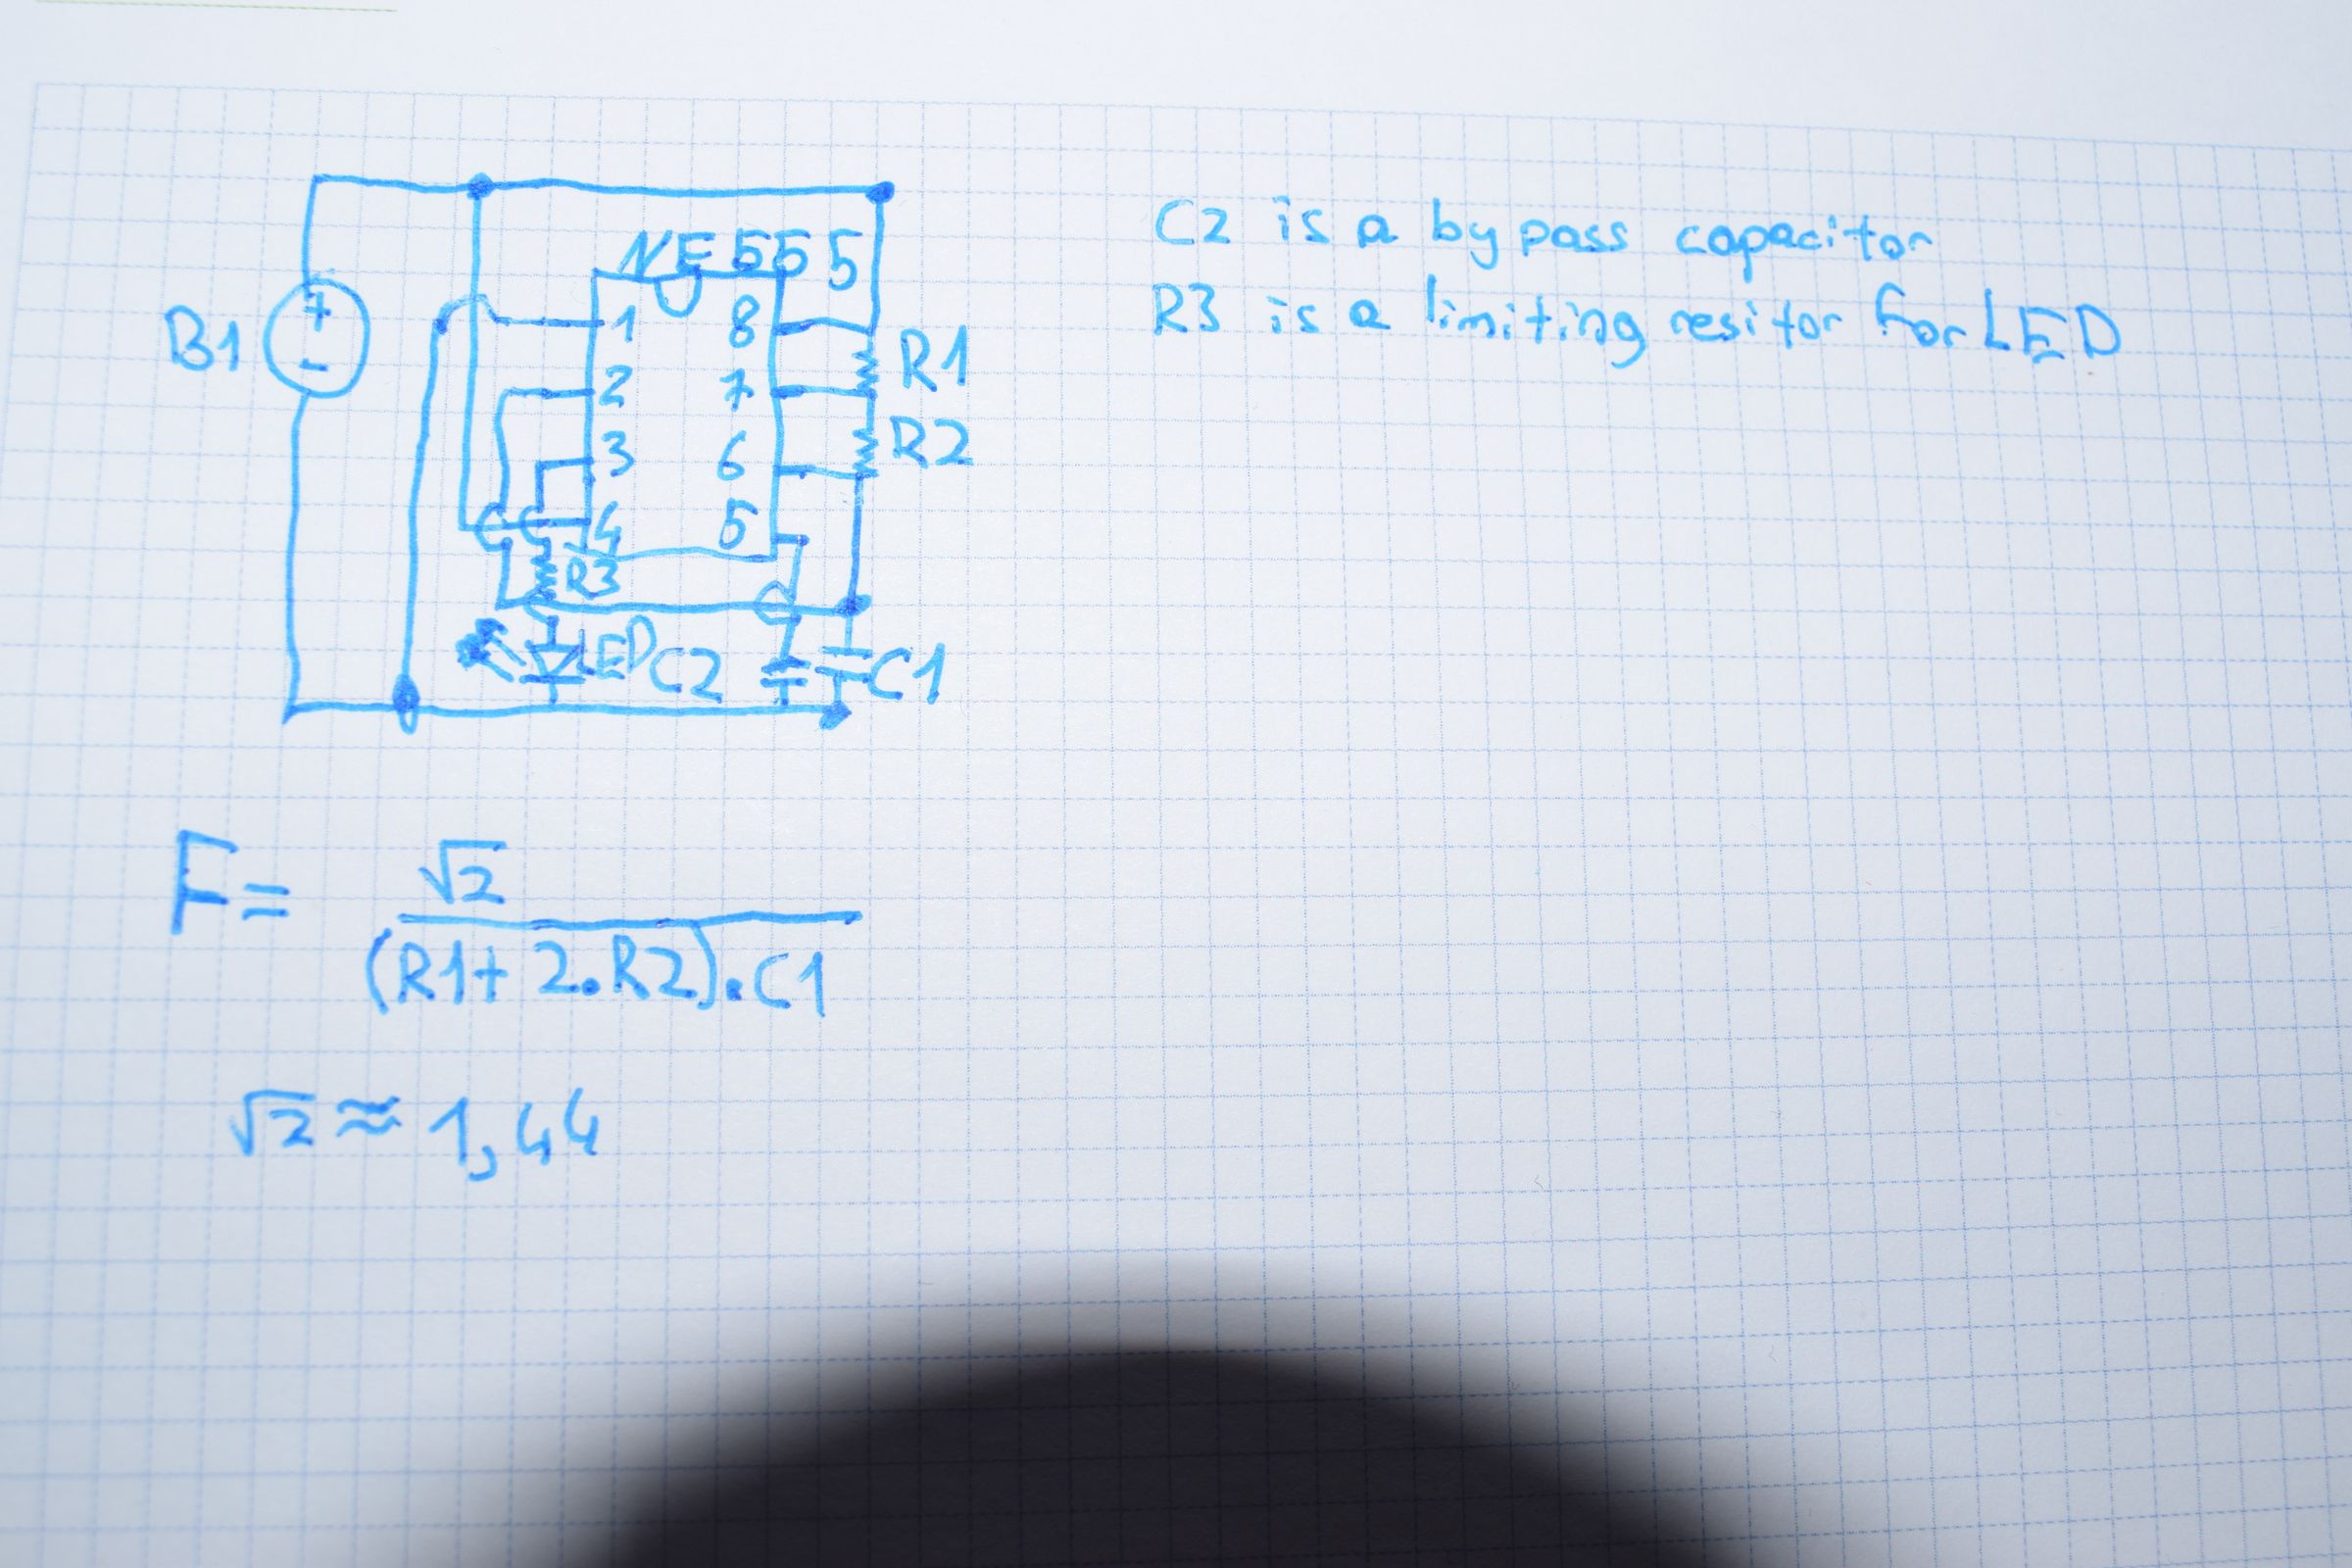 C2 is a bypass capacitor
R3 is a limiting resitor for LED
NE555
B1
1 8
R1
2 7
R2
3 6
4 5
R3
LED C2 C1
F = √2
(R1+ 2.R2).C1
√2 ≈ 1,44